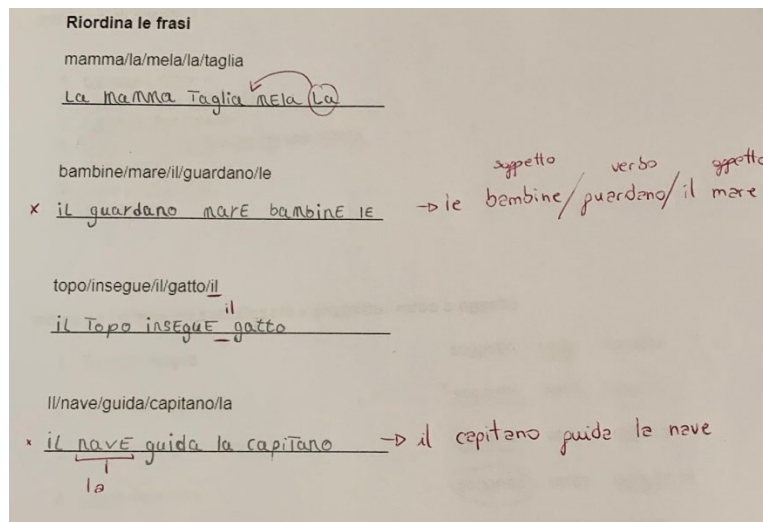 Riordina le frasi
mamma/la/mela/la/taglia
La mamma Taglia mEla La
bambine/mare/il/guardano/le
soggetto verbo oggetto
x iL guardano marE bambinE lE → le bambine/guardano/il mare
topo/insegue/il/gatto/il
il
iL Topo insEguE _ gatto
Il/nave/guida/capitano/la
x iL navE guida la capiTano → il capitano guida la nave
la